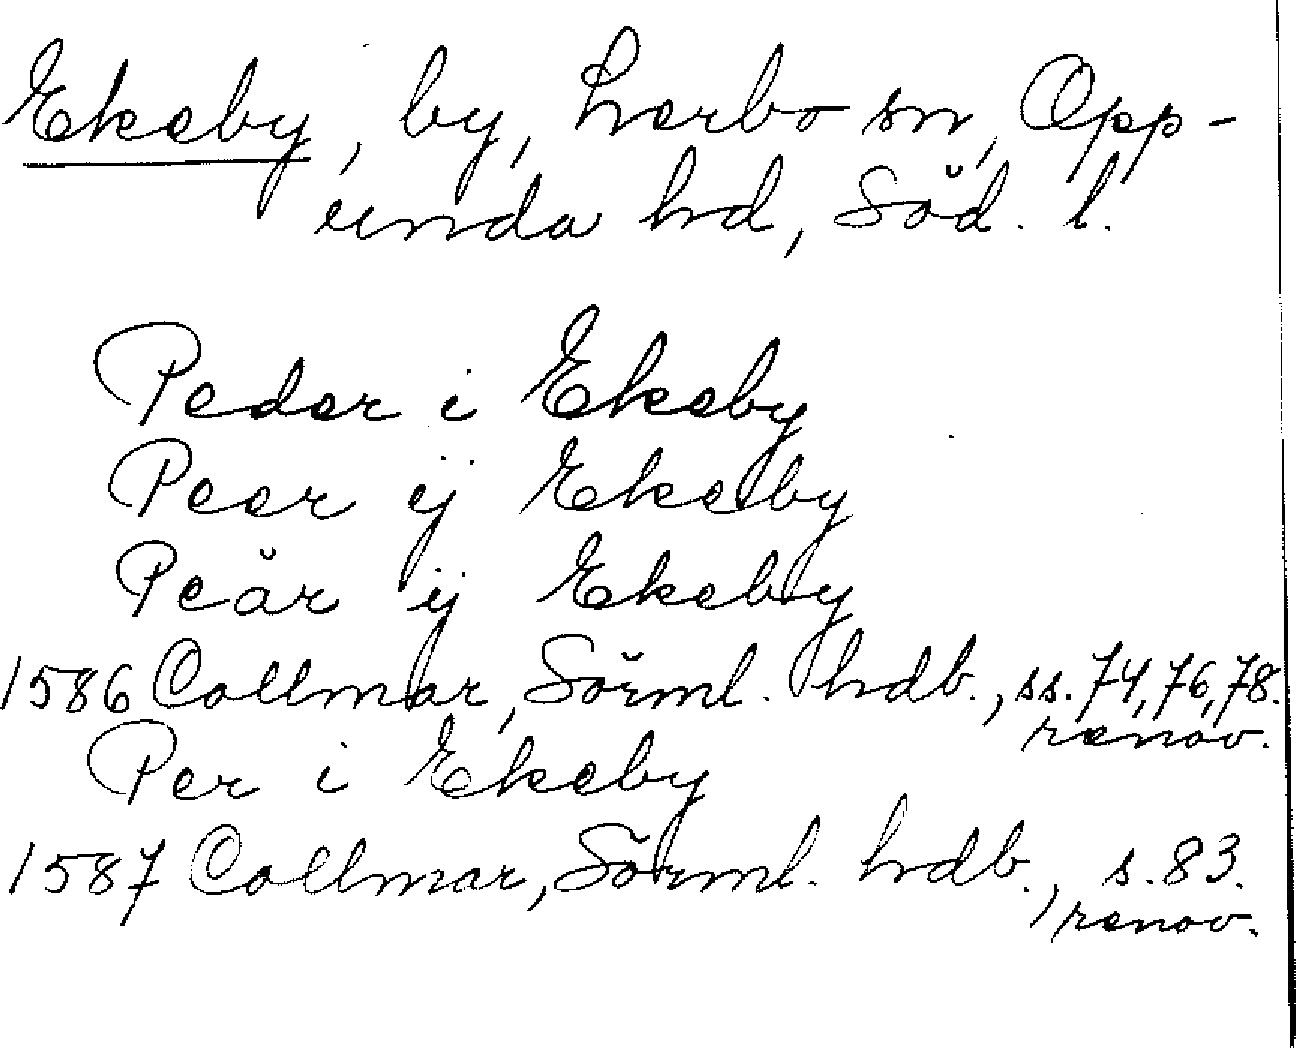 Ekeby, by, Lerbo sn, Opp-
unda hd, Söd. l.
Peder i Ekeby
Peer ÿ Ekeby
Peär ÿ Ekeby
1586 Collmar, Sörml. hdb., ss. 74, 76, 78.
renov.
Per i Ekeby
1587 Collmar, Sörml. hdb., s. 83.
renov.